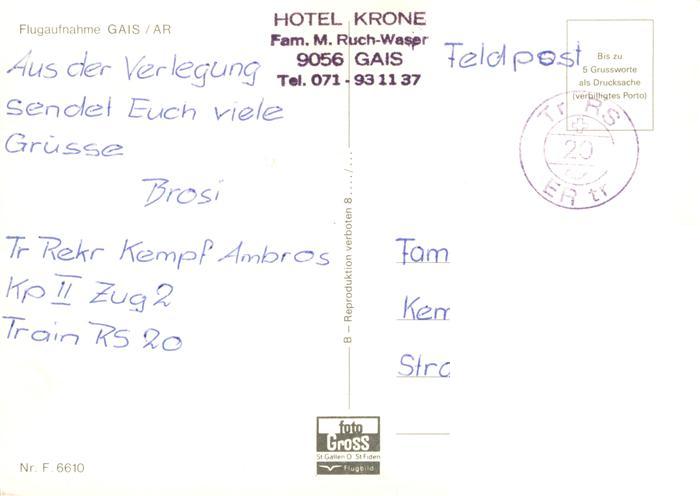 Flugaufnahme GAIS / AR
HOTEL KRONE
Fam. M. Ruch-Waser
9056 GAIS
Tel. 071 - 93 11 37
Feldpost
Bis zu
5 Grussworte
als Drucksache
(verbilligtes Porto)
Tr RS
20
ER tr
Aus der Verlegung
sendet Euch viele
Grüsse
Brosi
Tr Rekr Kempf Ambros
Kp II Zug 2
Train RS 20
B – Reproduktion verboten 8..../...
Fam
Kem
Stra
foto
Gross
St.Gallen O St.Fiden
Flugbild
Nr. F. 6610